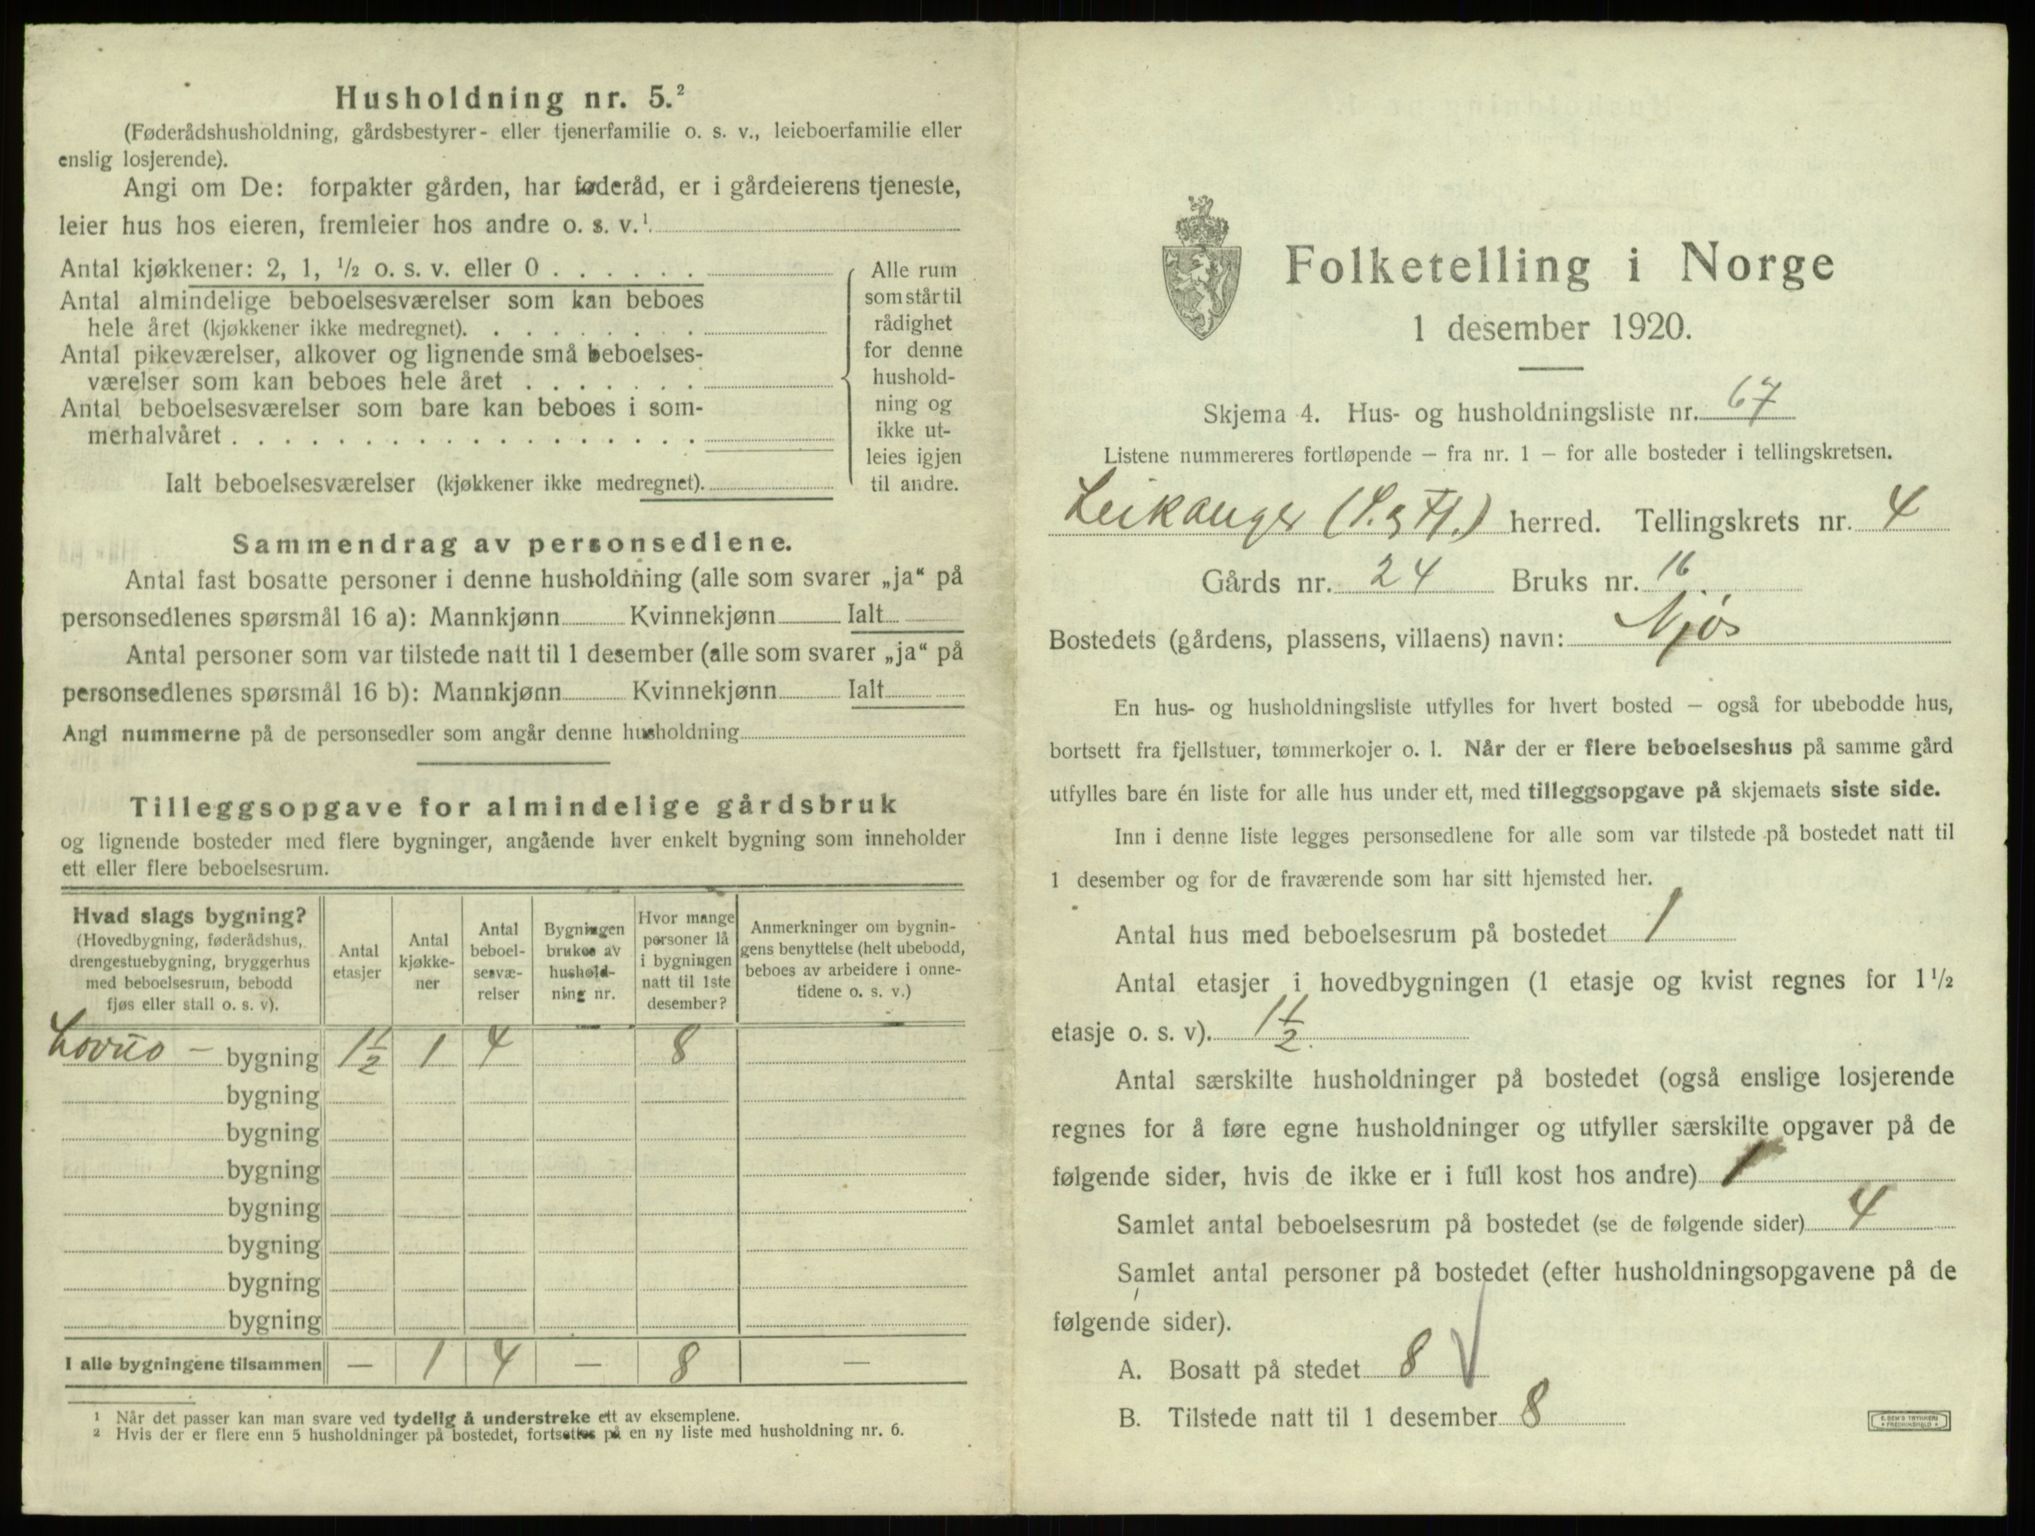 Husholdning nr. 5.²
(Føderådshusholdning, gårdsbestyrer- eller tjenerfamilie o. s. v., leieboerfamilie eller
enslig losjerende).
Angi om De: forpakter gården, har føderåd, er i gårdeierens tjeneste,
leier hus hos eieren, fremleier hos andre o. s. v.¹
Antal kjøkkener: 2, 1, ½ o. s. v. eller 0 . . . . . .
Antal almindelige beboelsesværelser som kan beboes
hele året (kjøkkener ikke medregnet). . . . . . . . .
Antal pikeværelser, alkover og lignende små beboelses-
værelser som kan beboes hele året . . . . . . .
Antal beboelsesværelser som bare kan beboes i som-
merhalvåret . . . . . . . . . . . . . . . . . .
Ialt beboelsesværelser (kjøkkener ikke medregnet).
Alle rum
som står til
rådighet
for denne
hushold-
ning og
ikke ut-
leies igjen
til andre.
Sammendrag av personsedlene.
Antal fast bosatte personer i denne husholdning (alle som svarer „ja“ på
personsedlenes spørsmål 16 a): Mannkjønn Kvinnekjønn Ialt
Antal personer som var tilstede natt til 1 desember (alle som svarer „ja“ på
personsedlenes spørsmål 16 b): Mannkjønn Kvinnekjønn Ialt
Angi nummerne på de personsedler som angår denne husholdning
Tilleggsopgave for almindelige gårdsbruk
og lignende bosteder med flere bygninger, angående hver enkelt bygning som inneholder
ett eller flere beboelsesrum.
Hvad slags bygning?
(Hovedbygning, føderådshus,
drengestuebygning, bryggerhus
med beboelsesrum, bebodd
fjøs eller stall o. s. v).
Antal
etasjer
Antal
kjøkke-
ner
Antal
beboel-
sesvæ-
relser
Bygningen
brukes av
hushold-
ning nr.
Hvor mange
personer lå
i bygningen
natt til 1ste
desember?
Anmerkninger om bygnin-
gens benyttelse (helt ubebodd,
beboes av arbeidere i onne-
tidene o. s. v.)
bygning 1½ 1 4 8
bygning
bygning
bygning
bygning
bygning
bygning
bygning
I alle bygningene tilsammen — 1 4 — 8 —
¹ Når det passer kan man svare ved tydelig å understreke ett av eksemplene.
² Hvis der er flere enn 5 husholdninger på bostedet, fortsettes på en ny liste med husholdning nr. 6.
Folketelling i Norge
1 desember 1920.
Skjema 4. Hus- og husholdningsliste nr. 67
Listene nummereres fortløpende – fra nr. 1 – for alle bosteder i tellingskretsen.
Leikanger (S. og Fj.) herred. Tellingskrets nr. 4
Gårds nr. 24 Bruks nr. 16
Bostedets (gårdens, plassens, villaens) navn: Njøs
En hus- og husholdningsliste utfylles for hvert bosted – også for ubebodde hus,
bortsett fra fjellstuer, tømmerkojer o. l. Når der er flere beboelseshus på samme gård
utfylles bare én liste for alle hus under ett, med tilleggsopgave på skjemaets siste side.
Inn i denne liste legges personsedlene for alle som var tilstede på bostedet natt til
1 desember og for de fraværende som har sitt hjemsted her.
Antal hus med beboelsesrum på bostedet 1
Antal etasjer i hovedbygningen (1 etasje og kvist regnes for 1½
etasje o. s. v). 1½
Antal særskilte husholdninger på bostedet (også enslige losjerende
regnes for å føre egne husholdninger og utfyller særskilte opgaver på de
følgende sider, hvis de ikke er i full kost hos andre) 1
Samlet antal beboelsesrum på bostedet (se de følgende sider) 4
Samlet antal personer på bostedet (efter husholdningsopgavene på de
følgende sider).
A. Bosatt på stedet 8 √
B. Tilstede natt til 1 desember 8